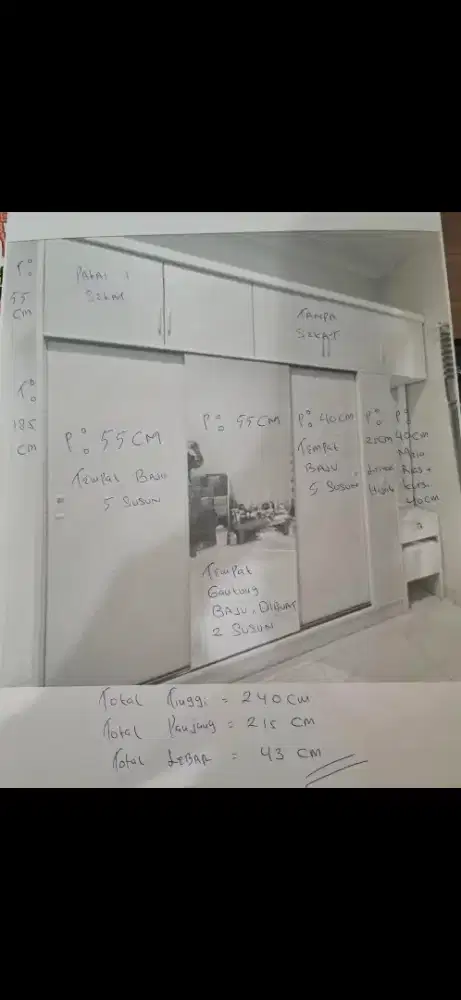 T: 55 CM
PAKAI
SEKAT
TANPA
SEKAT
T: 185 CM
P: 55 CM
TEMPAT BAJU
5 SUSUN
P: 55 CM
TEMPAT
Gantung
BAJU, DIBUAT
2 SUSUN
P: 40 CM
TEMPAT
BAJU
5 SUSUN
P: 25 CM
P: 40 CM
Meja
Rias
40 CM
TOTAL Tinggi = 240 CM
TOTAL Panjang = 215 CM
TOTAL LEBAR = 43 CM